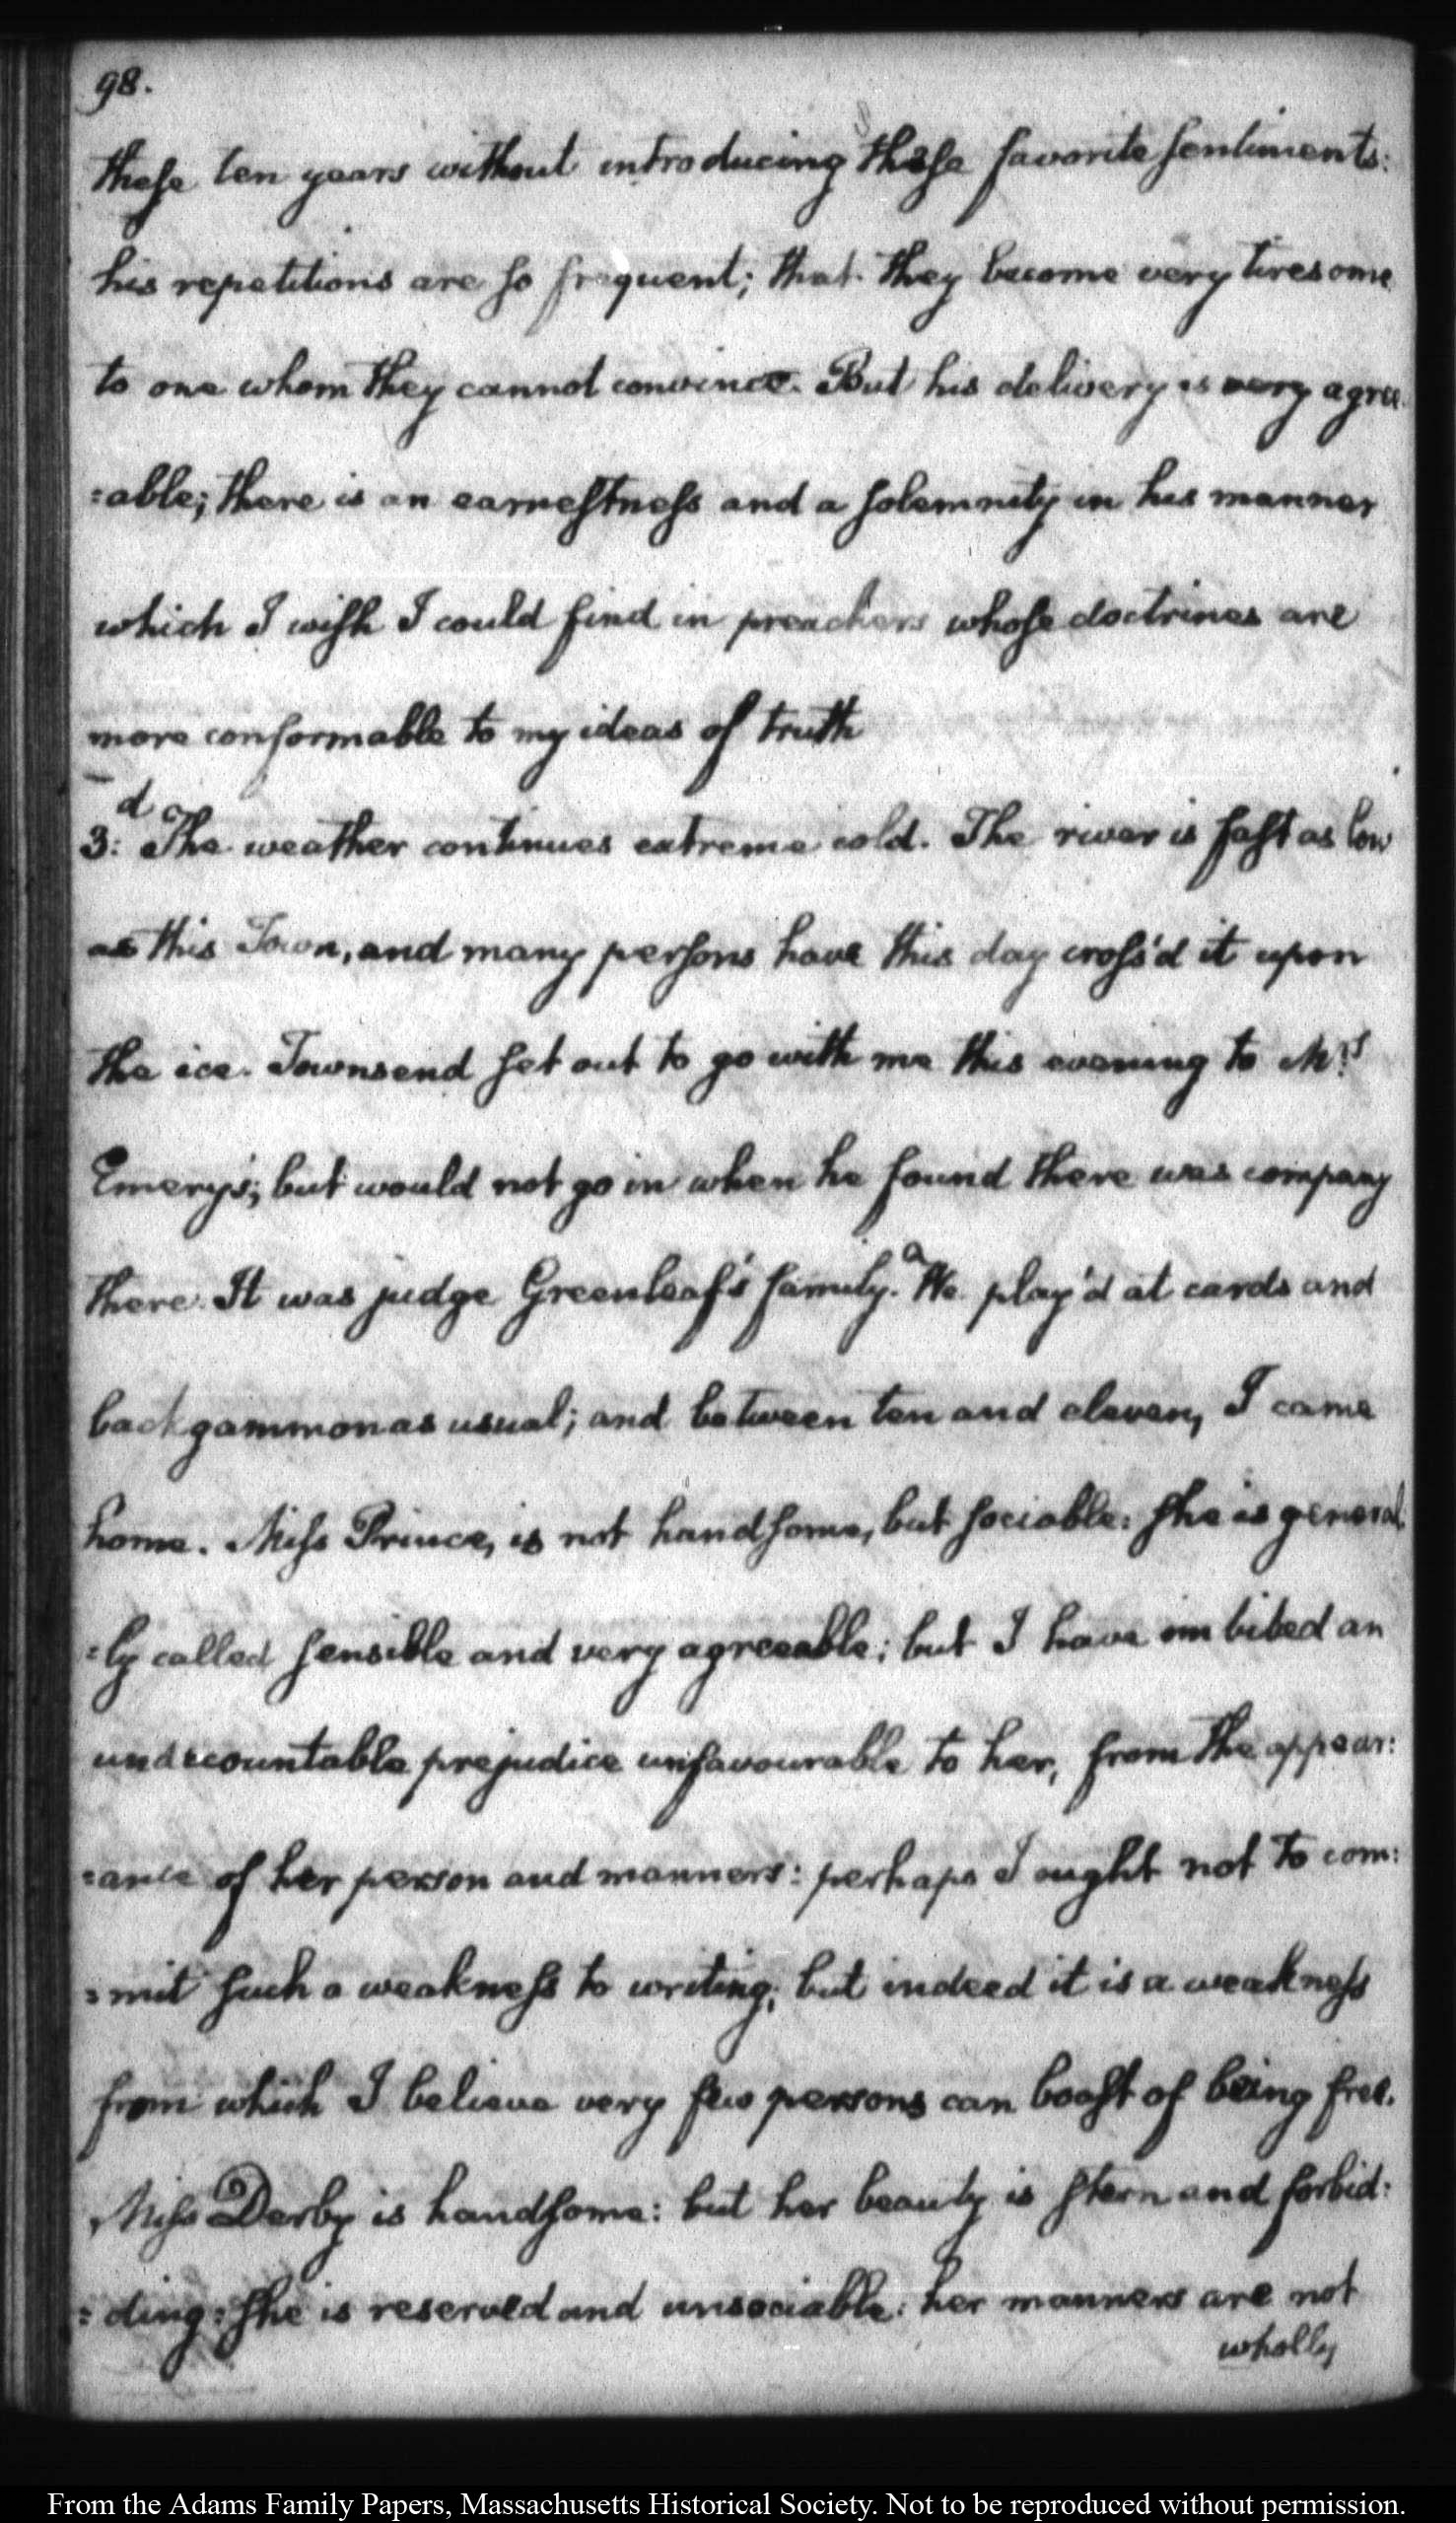 98.
these ten years without introducing these favorite sentiments:
his repetitions are so frequent; that they become very tiresome
to one whom they cannot convince. But his delivery is very agree
=able; there is an earnestness and a solemnity in his manner
which I wish I could find in preachers whose doctrines are
more conformable to my ideas of truth
3:d The weather continues extreme cold. The river is fast as low
as this Town, and many persons have this day cross'd it upon
the ice. Townsend set out to go with me this evening to Mrs
Emery's; but would not go in when he found there was company
there. It was judge Greenleaf's family.a We play'd at cards and
backgammon as usual; and between ten and eleven, I came
home. Miss Prince, is not handsome, but sociable: she is general
=ly called sensible and very agreeable; but I have imbibed an
unaccountable prejudice unfavourable to her, from the appear:
=ance of her person and manners: perhaps I ought not to com:
=mit such a weakness to writing; but indeed it is a weakness
from which I believe very few persons can boast of being free.
Miss Derby is handsome: but her beauty is stern and forbid:
=ding: she is reserved and unsociable: her manners are not
wholly
From the Adams Family Papers, Massachusetts Historical Society. Not to be reproduced without permission.